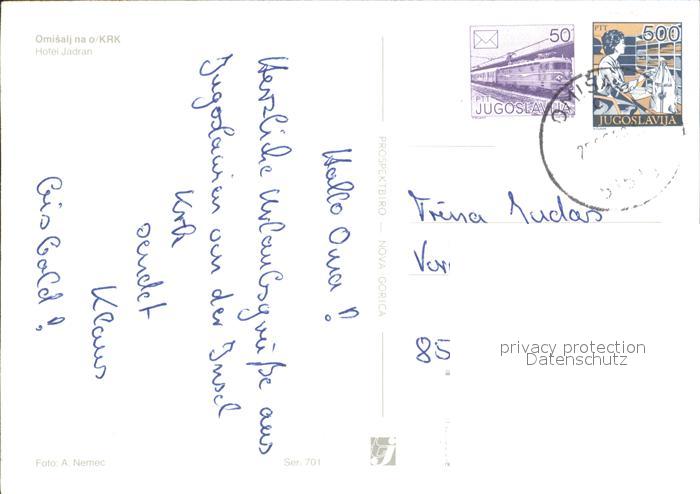 Omišalj na o/KRK
Hotel Jadran
PTT
50
JUGOSLAVIJA
PTT
500
JUGOSLAVIJA
Hallo Oma!
Herzliche Urlaubsgrüße aus
Jugoslawien von der Insel
Krk
sendet
Klaus
Bis bald!
PROSPEKTBIRO — NOVA GORICA
85
privacy protection
Datenschutz
Foto: A. Nemec
Ser. 701